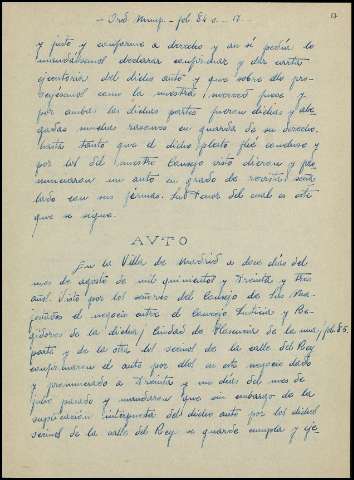 17
- Ord. Munip. - fol. 84 v. - 17 -
y justo y conforme a derecho y an sí pedía lo
mandásemos declarar confirmar y dar carta
ejecutoria del dicho auto y que sobre ello pro-
beyésemos como la nuestra merced fuese y
por ambas las dichas partes fueron dichas y ale-
gadas muchas rasones en guarda de su derecho
hasta tanto que el dicho pleito fué concluso y
por los del nuestro Consejo visto dieron y pro-
nunciaron un auto en grado de revista seña-
lado con sus firmas. Su tenor del cual es este
que se sigue.
AVTO
En la Villa de Madrid a doce días del
mes de agosto de mil quinientos y treinta y tres
años. Visto por los señores del Consejo de Sus Ma-
jestades el negocio entre el Concejo, Justicia y Re-
gidores de la dicha Ciudad de Plasencia de la una / fol. 85.
parte y de la otra los vecinos de la calle del Rey
confirmaron el auto por ellos en este negocio dado
y pronunciado a treinta y un días del mes de
julio pasado y mandaron que sin embargo de la
suplicación interpuesta del dicho auto por los dichos
vecinos de la calle del Rey se guarde cumpla y eje-